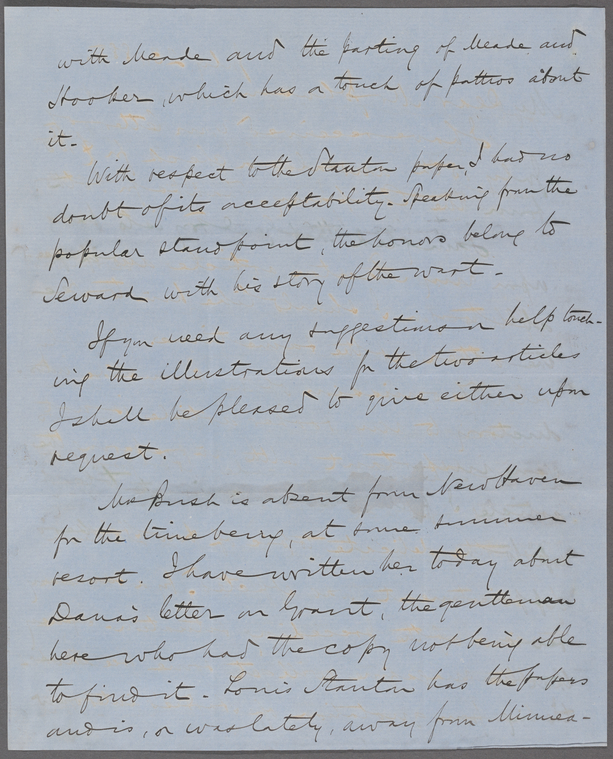 with Meade and the parting of Meade and
Hooker, which has a touch of pathos about
it.
With respect to the Stanton paper, I had no
doubt of its acceptability. Speaking from the
popular standpoint, the honors belong to
Seward with his story of the wart.
If you need any suggestions or help touch-
ing the illustrations for the two articles
I shall be pleased to give either upon
request.
Mrs Bush is absent from New Haven
for the time being, at some summer
resort. I have written her today about
Dana's letter on Grant, the gentleman
here who had the copy not being able
to find it. Louis Stanton has the papers
and is, or was lately, away from Minnea-